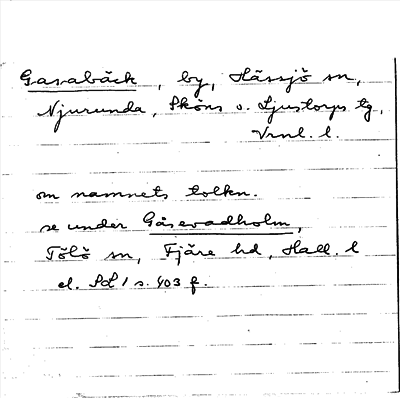 Gasabäck, by, Hässjö sn,
Njurunda, Sköns o. Ljustorps tg,
Vrnl. l.
om namnets tolkn.
se under Gåsevadholm,
Tölö sn, Fjäre hd, Hall. l
el. SOL 1 s. 403 f.